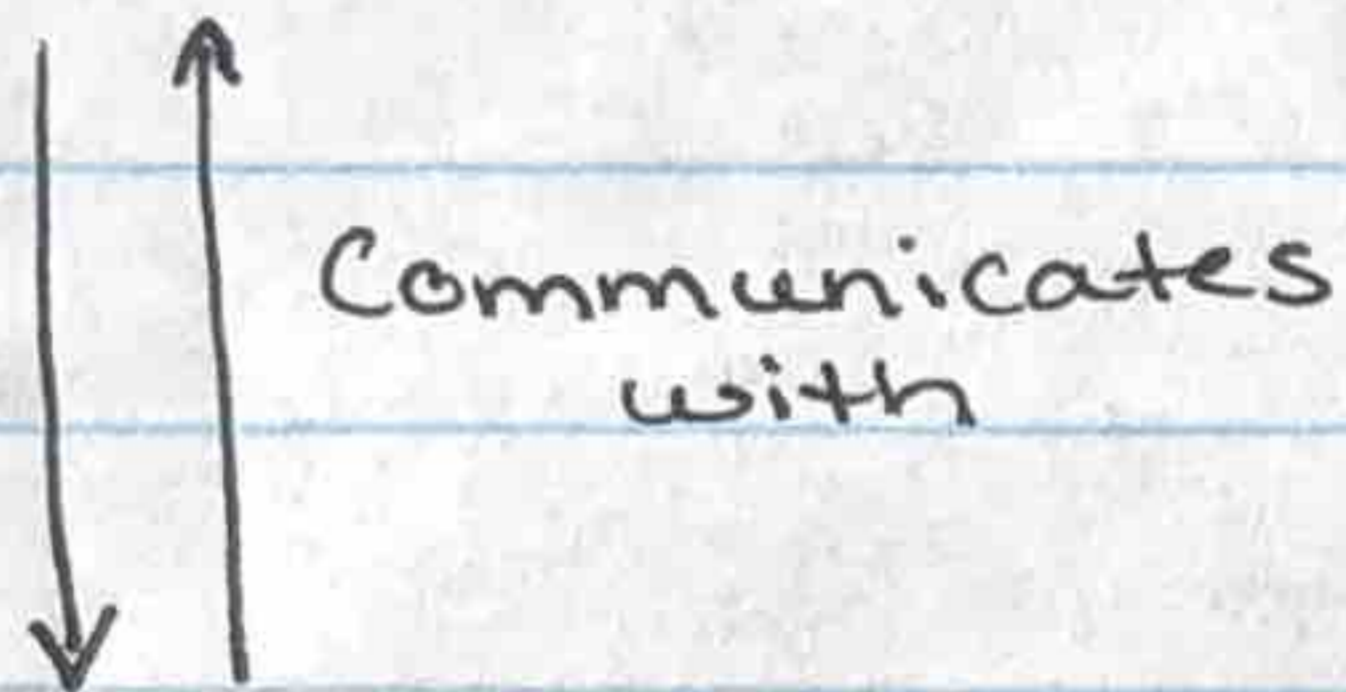 Communicates
with